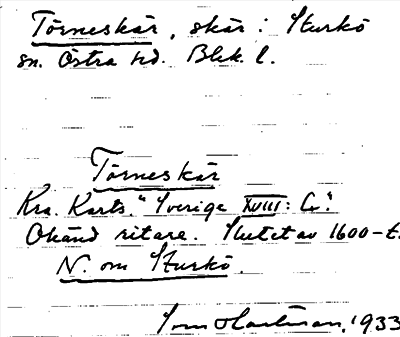 Törneskär, skär i Sturkö
sn. Östra hd. Blek. l.
Törneskär
Kra. Karts. "Sverige XVIII: C".
Okänd ritare. Slutet av 1600-t.
N. om Sturkö.
1933